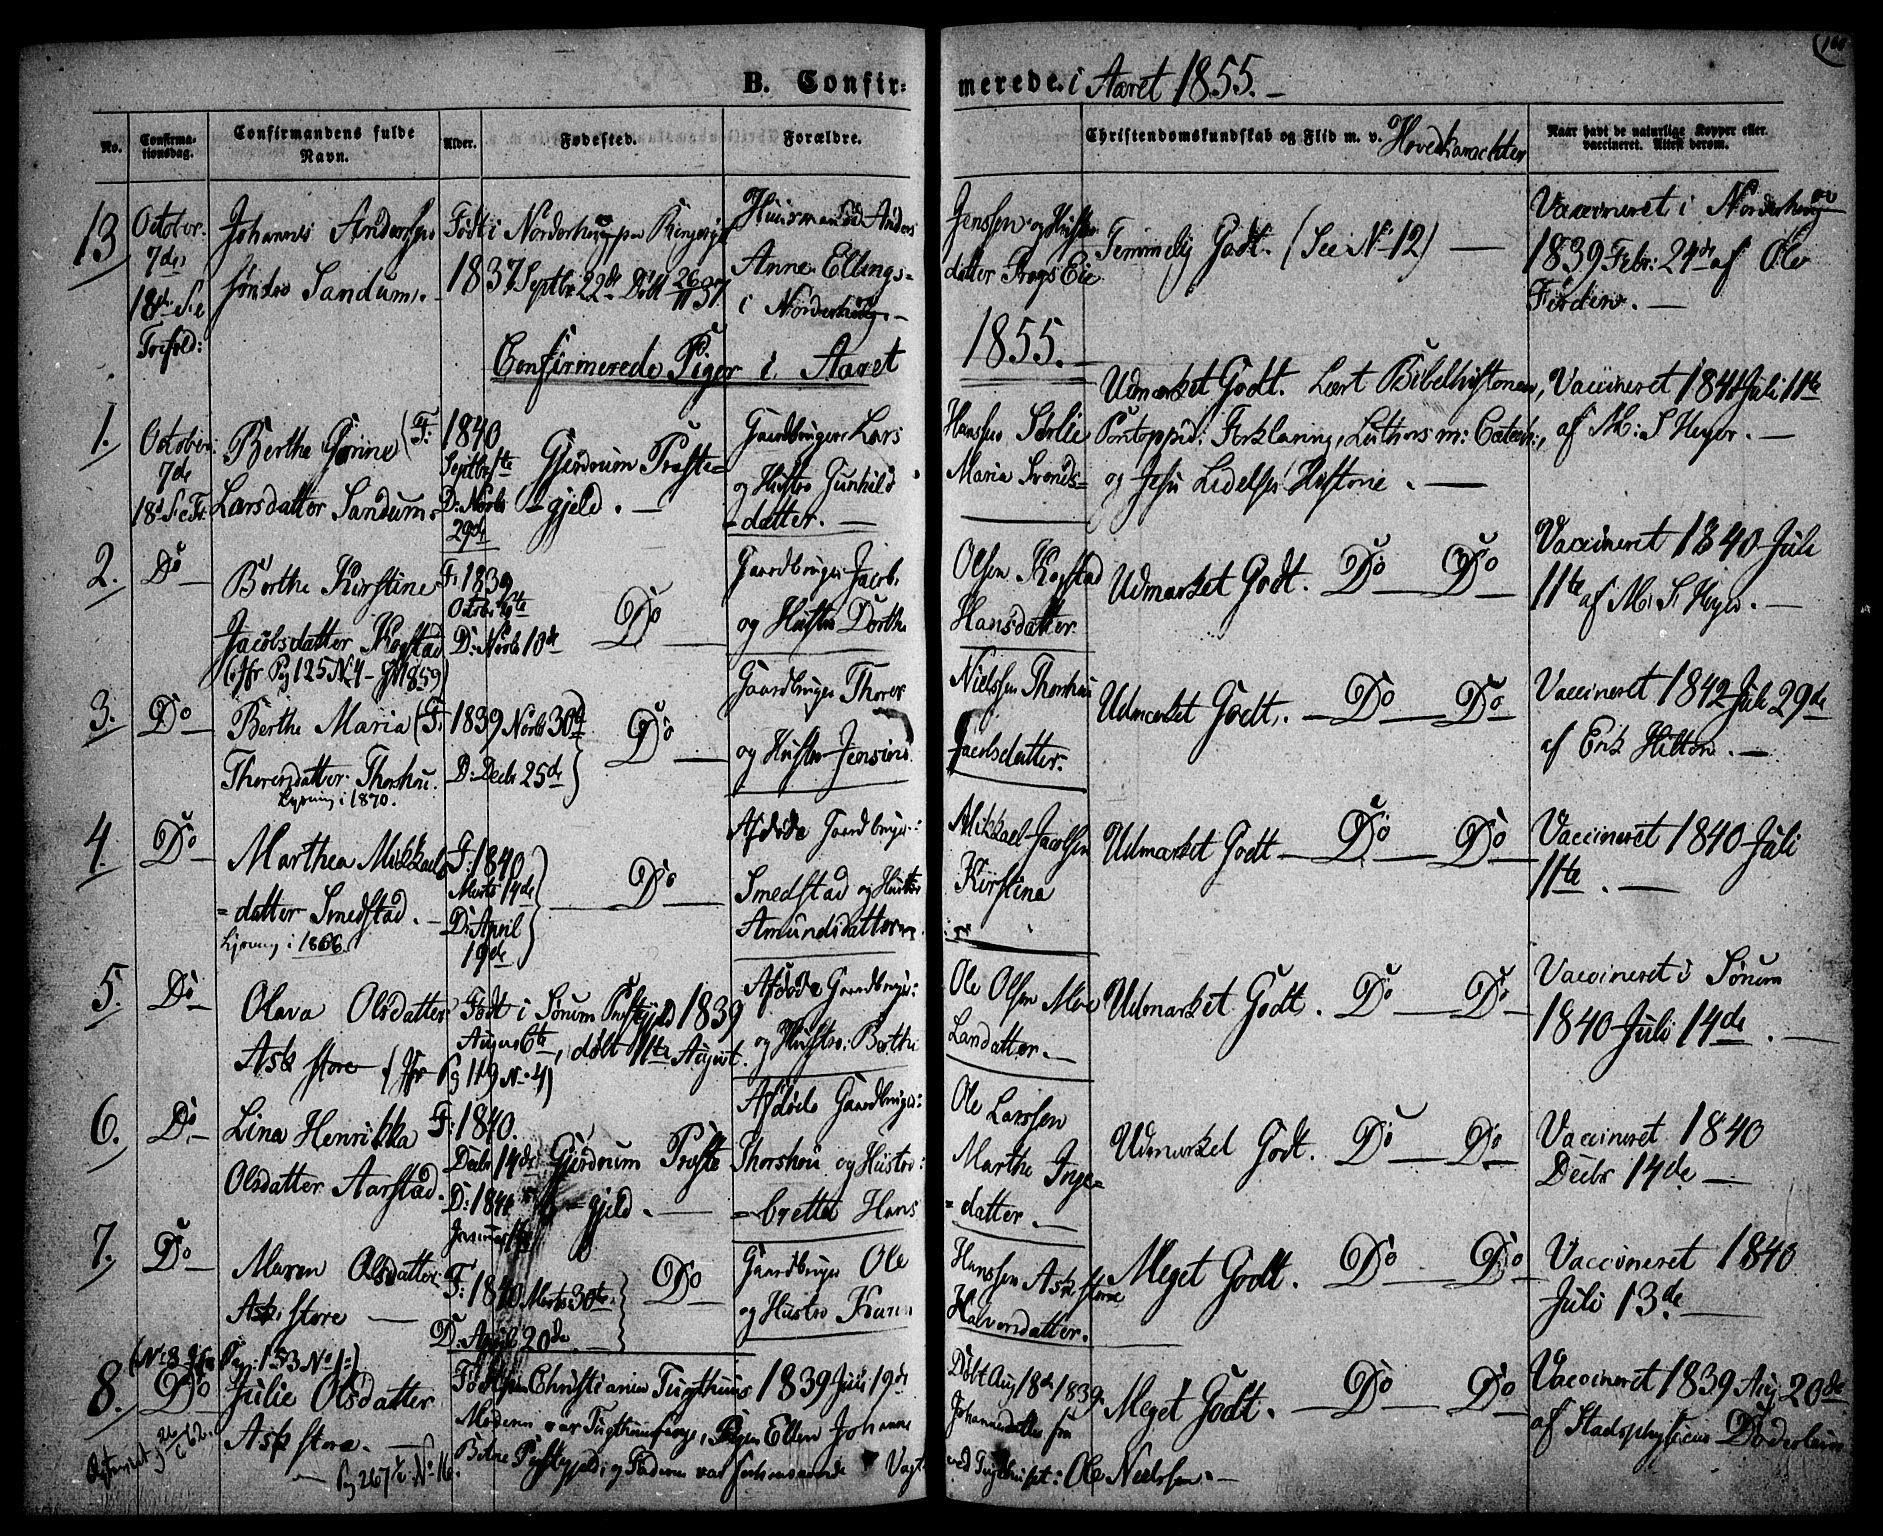 B. Confir-
merede. i Aaret 1855. -
No.
Confirma-
tionsdag.
Confirmandens fulde
Navn.
Alder.
Fødested.
Forældre.
Christendomskundskab og Flid m. v. Hovedkarachter
Naar havt de naturlige Kopper eller
vaccineret. Attest derom.
13
October
7de,
18de S. e
Trefold:
Johannes Anderssen
Sandum.
Født i Norderhoug paa Ringerige
1837 Septbr 22de Døbt 26/11 37
Huusmand Anders
Anne Ellings=
i Norderhoug. -
Jenssen og Hustro
datter Eie
Temmelig Godt. (See No 12) —
Vaccineret i Norderhoug
1839 Febr: 24de af Ole
Confirmerede Piger i Aaret
1855.
1.
October
7de
18d S. e Tr.
Berthe Gorine (F.
Larsdatter Sandum.
1840
Septbr
D: Novbr
29de
Gjerdrum Præste-
- gjeld. -
Gaardbruger Lars
og Hustro Gunhild
- datter. -
Hanssen Sørlie
Maria Svends=
Udmærket Godt. Lært Bibelhistorien,
Pontoppid: Forklaring, Luthers m: Catech:,
og Jesu Lidelses Historie. —
Vaccineret 1841 Juli 11te
af M: S Heyer. -
2.
Do -
Berthe Kirstine
Jacobsdatter Kogstad
(: Jfr Pag 125 No 4 - 1859)
F: 1839
Octobr
D: Novbr 10de
Do
Gaardbruger Jacob
og Hustro Dorthe
Olsen Kogstad
Hansdatter.
Udmærket Godt. Do — Do —
Vaccineret 1840 Juli
11te af M: S. Heyer. -
3.
Do
Berthe Maria (F.
Thorersdatter Thorshou.
Lysning i 1870.
1839 Novbr 30te
D: Decbr 25de
Do
Gaardbruger Thorer
og Hustro Jensine
Nielssen Thorshou
Jacobsdatter.
Udmærket Godt. — Do — Do
Vaccineret 1842 Juli 29de
af Erik Hilton. -
4.
Do
Marthea Mikkels
= datter Smedstad. -
Lysning i 1866
F: 1840
Marts 14de
D: April
19de
Do
Afdøde Gaardbruger:
Smedstad og Hustro
Amundsdatter
Mikkael Jacobsen
Kirstine
Udmærket Godt — Do — Do
Vaccineret 1840 Juli
11te. —
5.
Do
Olava Olsdatter
Ask store (Jfr Pag 119 No 4)
Født i Sørum Præstegjeld 1839
August 6te, døbt 11te August.
Afdøde Gaardbruger:
og Hustro: Berthe
Ole Olsen Moe
Larsdatter. -
Udmærket Godt. Do — Do
Vaccineret i Sørum
1840 Juli 14de. —
6.
Do
Lina Henrikka
Olsdatter Aarstad.
F: 1840.
Decbr 14de
D: 1841
Januar
Gjerdrum Præste
= gjeld. —
Afdøde Gaardbruger:
Thorshou og Hustro:
= brettа Hans
Ole Larssen
Marthe Inge=
= datter. -
Udmærket Godt. Do — Do
Vaccineret 1840
Decbr 14de —
7.
Do
Maren Olsdatter
Ask store —
F: 1840 Marts 30te
D: April 20de
Do
Gaardbruger Ole
og Hustro Karen
Hanssen Ask store
Halvorsdatter.
Meget Godt. Do — Do
Vaccineret 1840
Juli 13de —
8.
(No 8 Pag: 153 No 1:)
Do
Julie Olsdatter
Ask store. —
Pag 267 No 16.
Født i Christiania Tugthuus 1839 Juli 19de
Moderen var Tugthuusfange, Pigen Ellen Johanne
Præstegjeld, og Faderen var forhenværende Vagt
Døbt Aug 18de 1839.
Johannesdatter fra
ved Tugthuset: Ole Nielssen. -
Meget Godt. — Do — Do
Vaccineret 1839 Aug 20de
af Stadsphysicus Døderlein